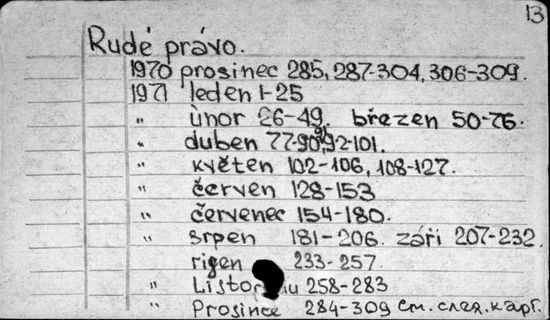 13
Rudé právo.
1970 prosinec 285, 287-304, 306-309.
1971 leden 1-25
" únor 26-49. březen 50-76.
" duben 77-90, 92-101.
" květen 102-106, 108-127.
" červen 128-153
" červenec 154-180.
" srpen 181-206. září 207-232.
řijen 233-257.
" 258-283
" Prosince 284-309 см. след. карт.